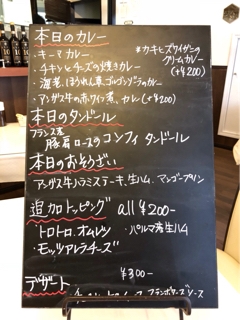 本日のカレー
・キーマ カレー
・チキンとチーズの焼きカレー
・海老、ほうれん草、ゴルゴンゾーラのカレー
・アンガス牛の赤ワイン煮、カレー(+¥200)
*カキとズワイガニの
クリームカレー
(+¥200)
本日のタンドール
フランス産
豚肩ロースのコンフィ タンドール
本日のおそうざい
アンガス牛ハラミステーキ、生ハム、マンゴープリン
追加トッピング all ¥200-
・トロトロ、オムレツ ・パルマ産生ハム
・モッツァレラチーズ
デザート ¥300-
フランボワーズソース